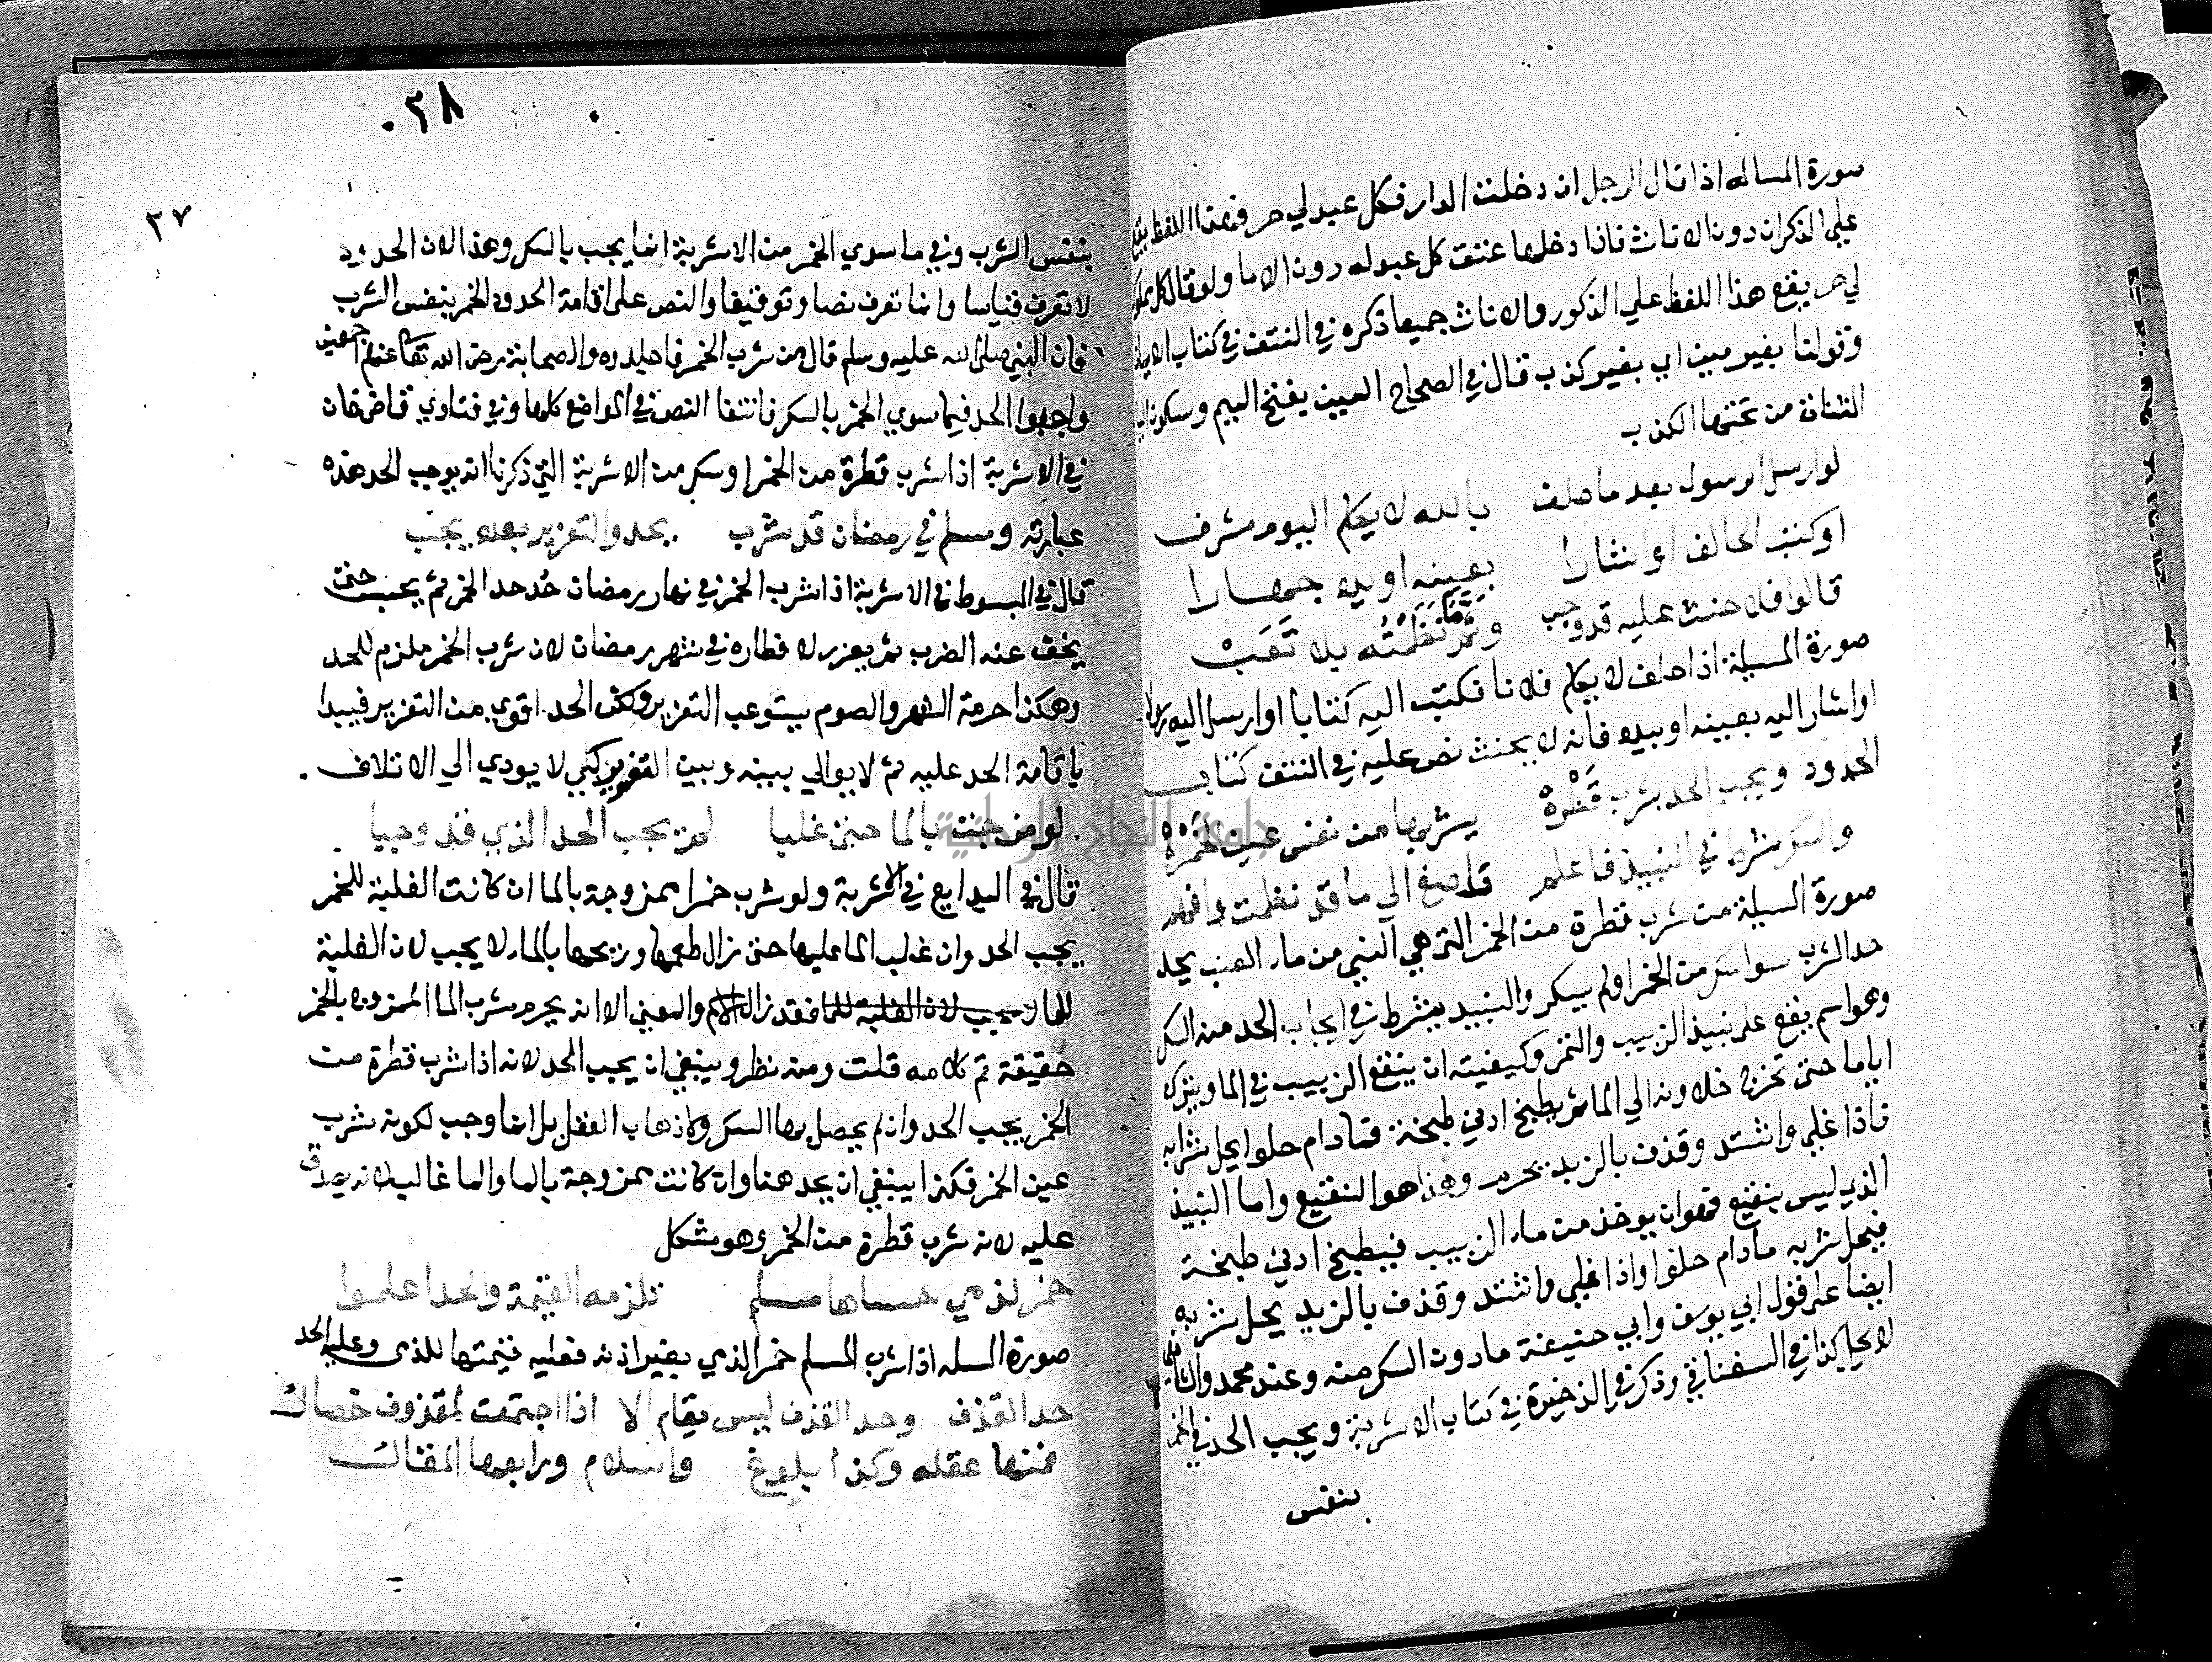 صورة المساله اذا قال الرجل ان دخلت الدار فكل عبد لي حر فهذا اللفظ يقع
علي الذكران دون الاناث فاذا دخلها عتق كل عبد له دون الاما ولو قال كل مملوك
لي حر يقع هذا اللفظ علي الذكور والاناث جميعا ذكره في النتف في كتاب الايمان
وقولنا بغير مين اي بغير كذب قال في الصحاح المين بفتح الميم وسكون اليا
المثناة من تحتها الكذب
لو ارسل الرسول بعد ما حلف بالله لا يكلم اليوم مشرف
او كتب الحالف او اشارا بعينه او يده جهارا
قالوا فلا حنث عليه قد وجب وتم ما نظمته بلا تعب
صورة المسيلة اذا حلف لا يكلم فلانا فكتب اليه كتابا او ارسل اليه رسولا
او اشار اليه بعينه او بيده فانه لا يحنث نص عليه في النتف كتاب
الحدود ويجب الحد بشرب قطرة يشربها من نفس عين الخمرة
والسكر شرط في النبيذ فاعلم فاصغ الي ما قد نظمت وافهم
صورة المسيلة من شرب قطرة من الخمر التي هي النيي من ماء العنب يحد
حد الشرب سوا سكر من الخمر او لم يسكر والنبيذ يشترط في ايجاب الحد منه السكر
وهو اسم يقع علي نبيذ الزبيب والتمر وكيفيته ان ينقع الزبيب في الما ويترك
اياما حتى تخرج حلاوته الي الما ثم يطبخ ادني طبخة فما دام حلوا يحل شرابه
فاذا غلي واشتد وقذف بالزبد يحرم وهذا هو النقيع واما النبيذ
الذي ليس بنقيع فهو ان يوخذ من ماء الزبيب فيطبخ ادني طبخة
فيحل شربه ما دام حلوا واذا غلي واشتد وقذف بالزبد يحل شربه
ايضا علي قول ابي يوسف وابي حنيفة ما دون السكر منه وعند محمد والشافعي
لا يحل كذا في السغناقي وذكر في الذخيرة في كتاب الاشربة ويجب الحد في الخمر
بنفس
٠٣٨
٣٧
بنفس الشرب وفي ما سوي الخمر من الاشربة انما يجب بالسكر وهذا لان الحدود
لا تعرف قياسا وانما تعرف نصا وتوقيفا والنص علي اقامة الحدود الخمر بنفس الشرب
فان النبي صلى الله عليه وسلم قال من شرب الخمر فاجلدوه والصحابة رضي الله تعا عنهم اجمعين
واجبوا الحد فيما سوي الخمر بالسكر فانتفا النص في المواضع كلها وفي فتاوي قاض خان
في الاشربة اذا شرب قطرة من الخمر او سكر من الاشربة التي ذكرنا انه يوجب الحد هذه
عبارته ومسلم في رمضان قد شرب يحد والتعزير بعده يجب
قال في المبسوط في الاشربة اذا شرب الخمر في نهار رمضان حُد حد الخمر ثم يحبس حتى
يخف عنه الضرب ثم يعزر لافطاره في شهر رمضان لان شرب الخمر ملزم للحد
وهكذا حرمة الشهر والصوم يستوعب التعزير ولكن الحد اقوي من التعزير فيبدا
باقامة الحد عليه ثم لا يوالي بينه وبين التعزير كي لا يودي الي الاتلاف .
لو مزجت بالما حتى غلبا لم يجب الحد الذي قد وجبا .
قال في البدايع في الاشربة ولو شرب خمرا ممزوجة بالما ان كانت الغلبة للخمر
يجب الحد وان غلب الما عليها حتى زال طعمها وريحها بالماء لا يجب لان الغلبة
للما لا يجب لان الغلبة للما فقد زال الاسم والمعني الا انه يحرم شرب الما الممزوج بالخمر
حقيقة تم كلامه قلت ومنه نظر وينبغي ان يجب الحد لانه اذا شرب قطرة من
الخمر يجب الحد وان لم يحصل بها السكر واذهاب العقل بل انما وجب لكونه شرب
عين الخمر فكذا ينبغي ان يحد هنا وان كانت ممزوجة بالما والما غالب لانه يصدق
عليه لانه شرب قطرة من الخمر وهو مشكل
خمر لذمي حساها مسلم تلزمه القيمة والحد اعلموا
صورة المسله اذا شرب المسلم خمر الذمي بغير اذنه فعليه قيمتها للذمي وعليه الحد
حد القذف وحد القذف ليس يقام الا اذا اجتمعت لمقذوف خصال
فمنها عقله وكذا بلوغ واسلام ورابعها المقال